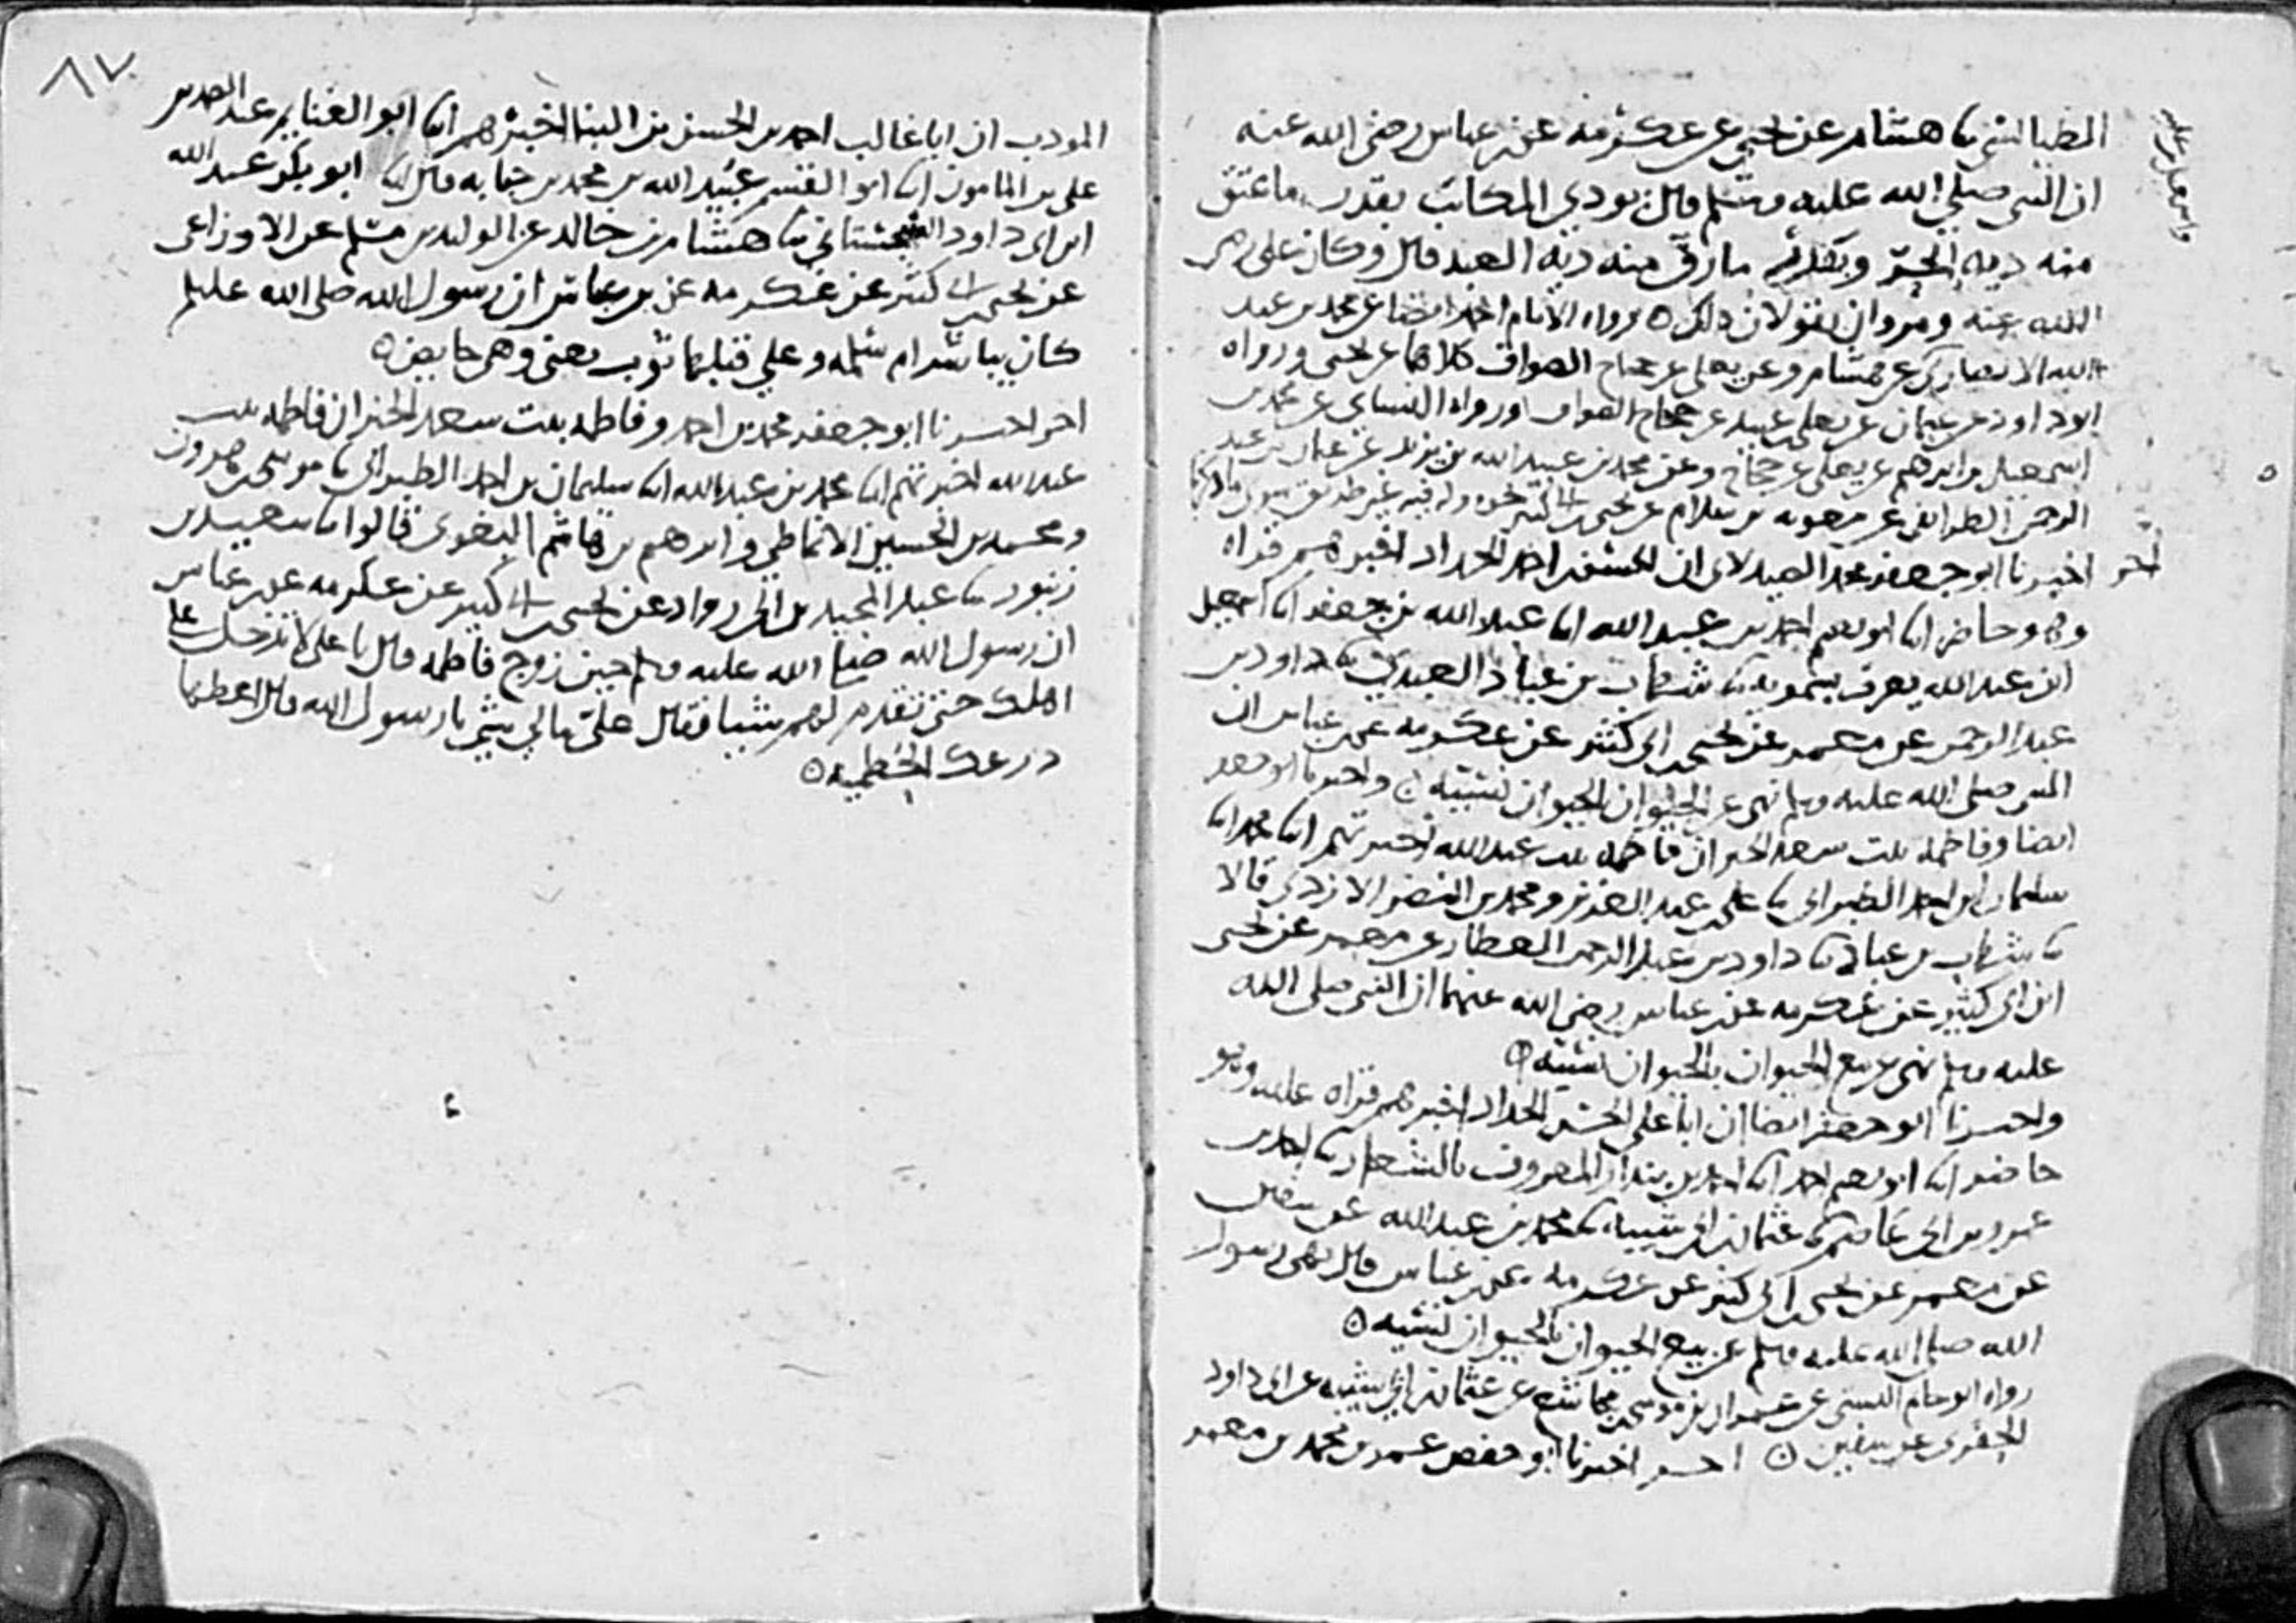 الطيالسي نا هشام عن يحيى عن عكرمه عن بن عباس رضي الله عنه
ان النبي صلى الله عليه وسلم قال يودي المكاتب بقدر ما عتق
منه ديه الحر وبقدر ما رق منه ديه العبد قال وكان علي رضي
الله عنه ومروان يقولان ذلك ه رواه الامام احمد ايضا عن محمد بن عبد
الله الانصاري عن هشام وعن يعلى عن حجاج الصواف كلاهما عن يحيى ورواه
ابو داود عن عثمان عن يعلى بن عبيد عن حجاج الصواف ورواه النسائي عن محمد بن
اسمعيل بن ابرهيم عن يعلى عن حجاج وعن محمد بن عبيد الله بن يزيد عن عثمان بن عبد
الرحمن الطرائفي عن معويه بن سلام عن يحيى بن ابي كثير نحوه
اخر اخبرنا ابو جعفر محمد الصيدلاني ان الحسن بن احمد الحداد اخبرهم قراه
وهو حاضر انا ابو نعيم احمد بن عبد الله انا عبد الله بن جعفر انا اسمعيل
ابن عبد الله يعرف بسمويه نا شهاب بن عباد العبدي نا داود بن
عبد الرحمن عن معمر عن يحيى بن ابي كثير عن عكرمه عن بن عباس ان
النبي صلى الله عليه وسلم نهى عن الحيوان بالحيوان نسيئه ه واخبرنا ابو جعفر
ايضا وفاطمه بنت سعد الخير ان فاطمه بنت عبد الله اخبرتهم انا محمد انا
سليمان بن احمد الطبراني نا علي بن عبد العزيز ومحمد بن النضر الازدي قالا
نا شهاب بن عباد نا داود بن عبد الرحمن العطار عن معمر عن يحيى
ابن ابي كثير عن عكرمه عن بن عباس رضي الله عنهما ان النبي صلى الله
عليه وسلم نهى عن بيع الحيوان بالحيوان نسيئه ه
واخبرنا ابو جعفر ايضا ان ابا علي الحسن الحداد اخبرهم قراه عليه وهو
حاضر انا ابو نعيم احمد انا احمد بن بندار المعروف بالشعار نا احمد بن
عمرو بن ابي عاصم نا عثمان بن ابي شيبه نا محمد بن عبد الله عن سفين
عن معمر عن يحيى بن ابي كثير عن عكرمه عن بن عباس قال نهى رسول
الله صلى الله عليه وسلم عن بيع الحيوان بالحيوان نسيئه ه
رواه ابو حاتم البستي عن عمران بن موسى بن مجاشع عن عثمان بن ابي شيبه عن ابي داود
الحفري عن سفين ه اخر اخبرنا ابو حفص عمر بن محمد بن معمر
٨٧
المودب ان ابا غالب احمد بن الحسن بن البنا اخبرهم انا ابو الغنايم عبد الصمد بن
علي بن المامون انا ابو القسم عبيد الله بن محمد بن حبابه قال نا ابو بكر عبد الله
ابن ابي داود السجستاني نا هشام بن خالد عن الوليد بن مسلم عن الاوزاعي
عن يحيى بن ابي كثير عن عكرمه عن بن عباس ان رسول الله صلى الله عليه وسلم
كان يباشر ام سلمه وعلى قبلها ثوب يعني وهي حايض ه
اخر اخبرنا ابو جعفر محمد بن احمد وفاطمه بنت سعد الخير ان فاطمه بنت
عبد الله اخبرتهم انا محمد بن عبد الله انا سليمان بن احمد الطبراني نا موسى بن هرون
ومحمد بن الحسين الانماطي وابرهيم بن هاشم البغوي قالوا نا سعيد بن
زنبور نا عبد المجيد بن ابي رواد عن يحيى بن ابي كثير عن عكرمه عن بن عباس
ان رسول الله صلى الله عليه وسلم حين زوج فاطمه قال يا علي لا تدخل على
اهلك حتى تقدم لهم شيا فقال علي مالي شي يا رسول الله قال اعطها
درعك الحطميه ه